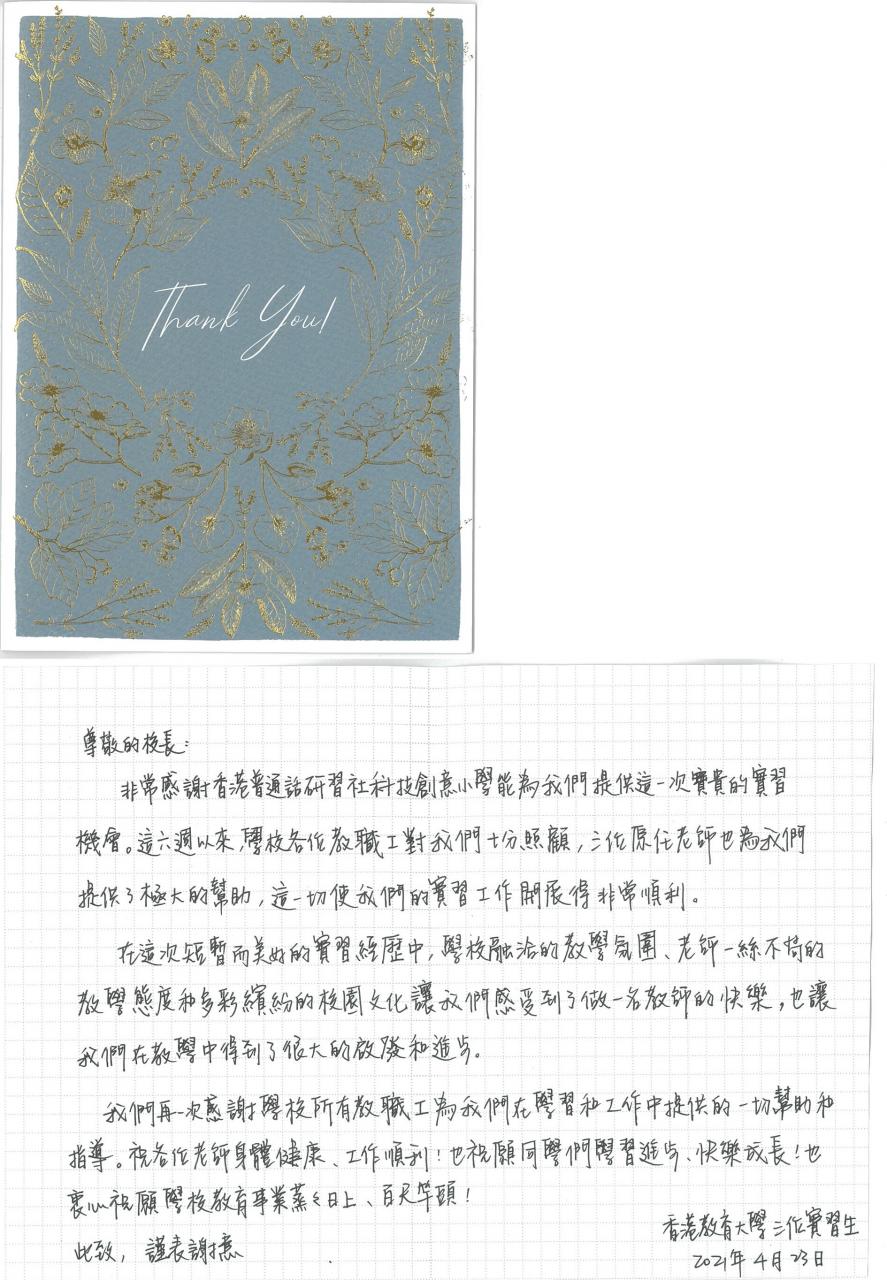 Thank You!
尊敬的校長:
非常感謝香港普通話研習社科技創意小學能為我們提供這一次寶貴的實習
機會。這六週以來,學校各位教職工對我們十分照顧,三位原任老師也為我們
提供了極大的幫助,這一切使我們的實習工作開展得非常順利。
在這次短暫而美好的實習經歷中,學校融洽的教學氛圍、老師一絲不苟的
教學態度和多彩繽紛的校園文化讓我們感受到了做一名教師的快樂,也讓
我們在教學中得到了很大的啟發和進步。
我們再一次感謝學校所有教職工為我們在學習和工作中提供的一切幫助和
指導。祝各位老師身體健康、工作順利!也祝願同學們學習進步、快樂成長!也
衷心祝願學校教育事業蒸々日上、百尺竿頭!
此致,謹表謝意
香港教育大學三位實習生
2021年4月23日